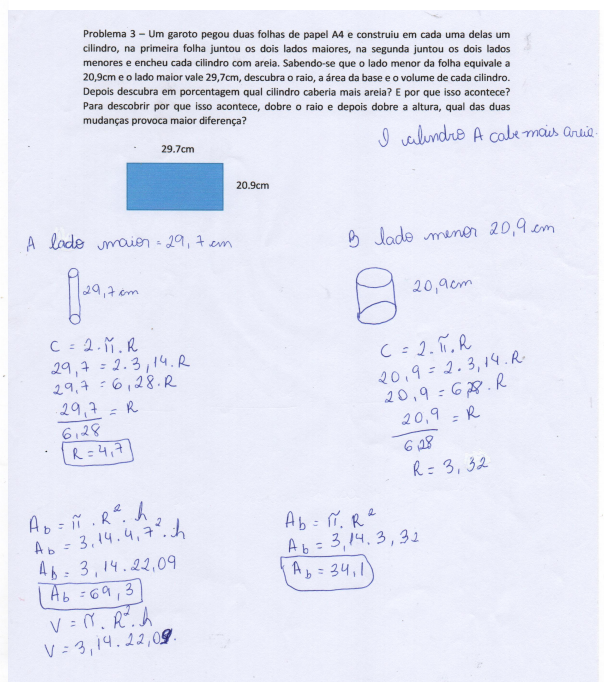 Problema 3 – Um garoto pegou duas folhas de papel A4 e construiu em cada uma delas um
cilindro, na primeira folha juntou os dois lados maiores, na segunda juntou os dois lados
menores e encheu cada cilindro com areia. Sabendo-se que o lado menor da folha equivale a
20,9cm e o lado maior vale 29,7cm, descubra o raio, a área da base e o volume de cada cilindro.
Depois descubra em porcentagem qual cilindro caberia mais areia? E por que isso acontece?
Para descobrir por que isso acontece, dobre o raio e depois dobre a altura, qual das duas
mudanças provoca maior diferença?
O cilindro A cabe mais areia.
29.7cm
20.9cm
A lado maior = 29,7 cm
B lado menor 20,9 cm
29,7 cm
20,9cm
C = 2.π.R
29,7 = 2.3,14.R
29,7 = 6,28.R
29,7 = R
6,28
R = 4,7
C = 2.π.R
20,9 = 2.3,14.R
20,9 = 6,28.R
20,9 = R
6,28
R = 3,32
Ab = π.R².h
Ab = 3,14.4,7².h
Ab = 3,14.22,09
Ab = 69,3
V = π.R².h
V = 3,14.22,09.
Ab = π.R²
Ab = 3,14.3,32
Ab = 34,1